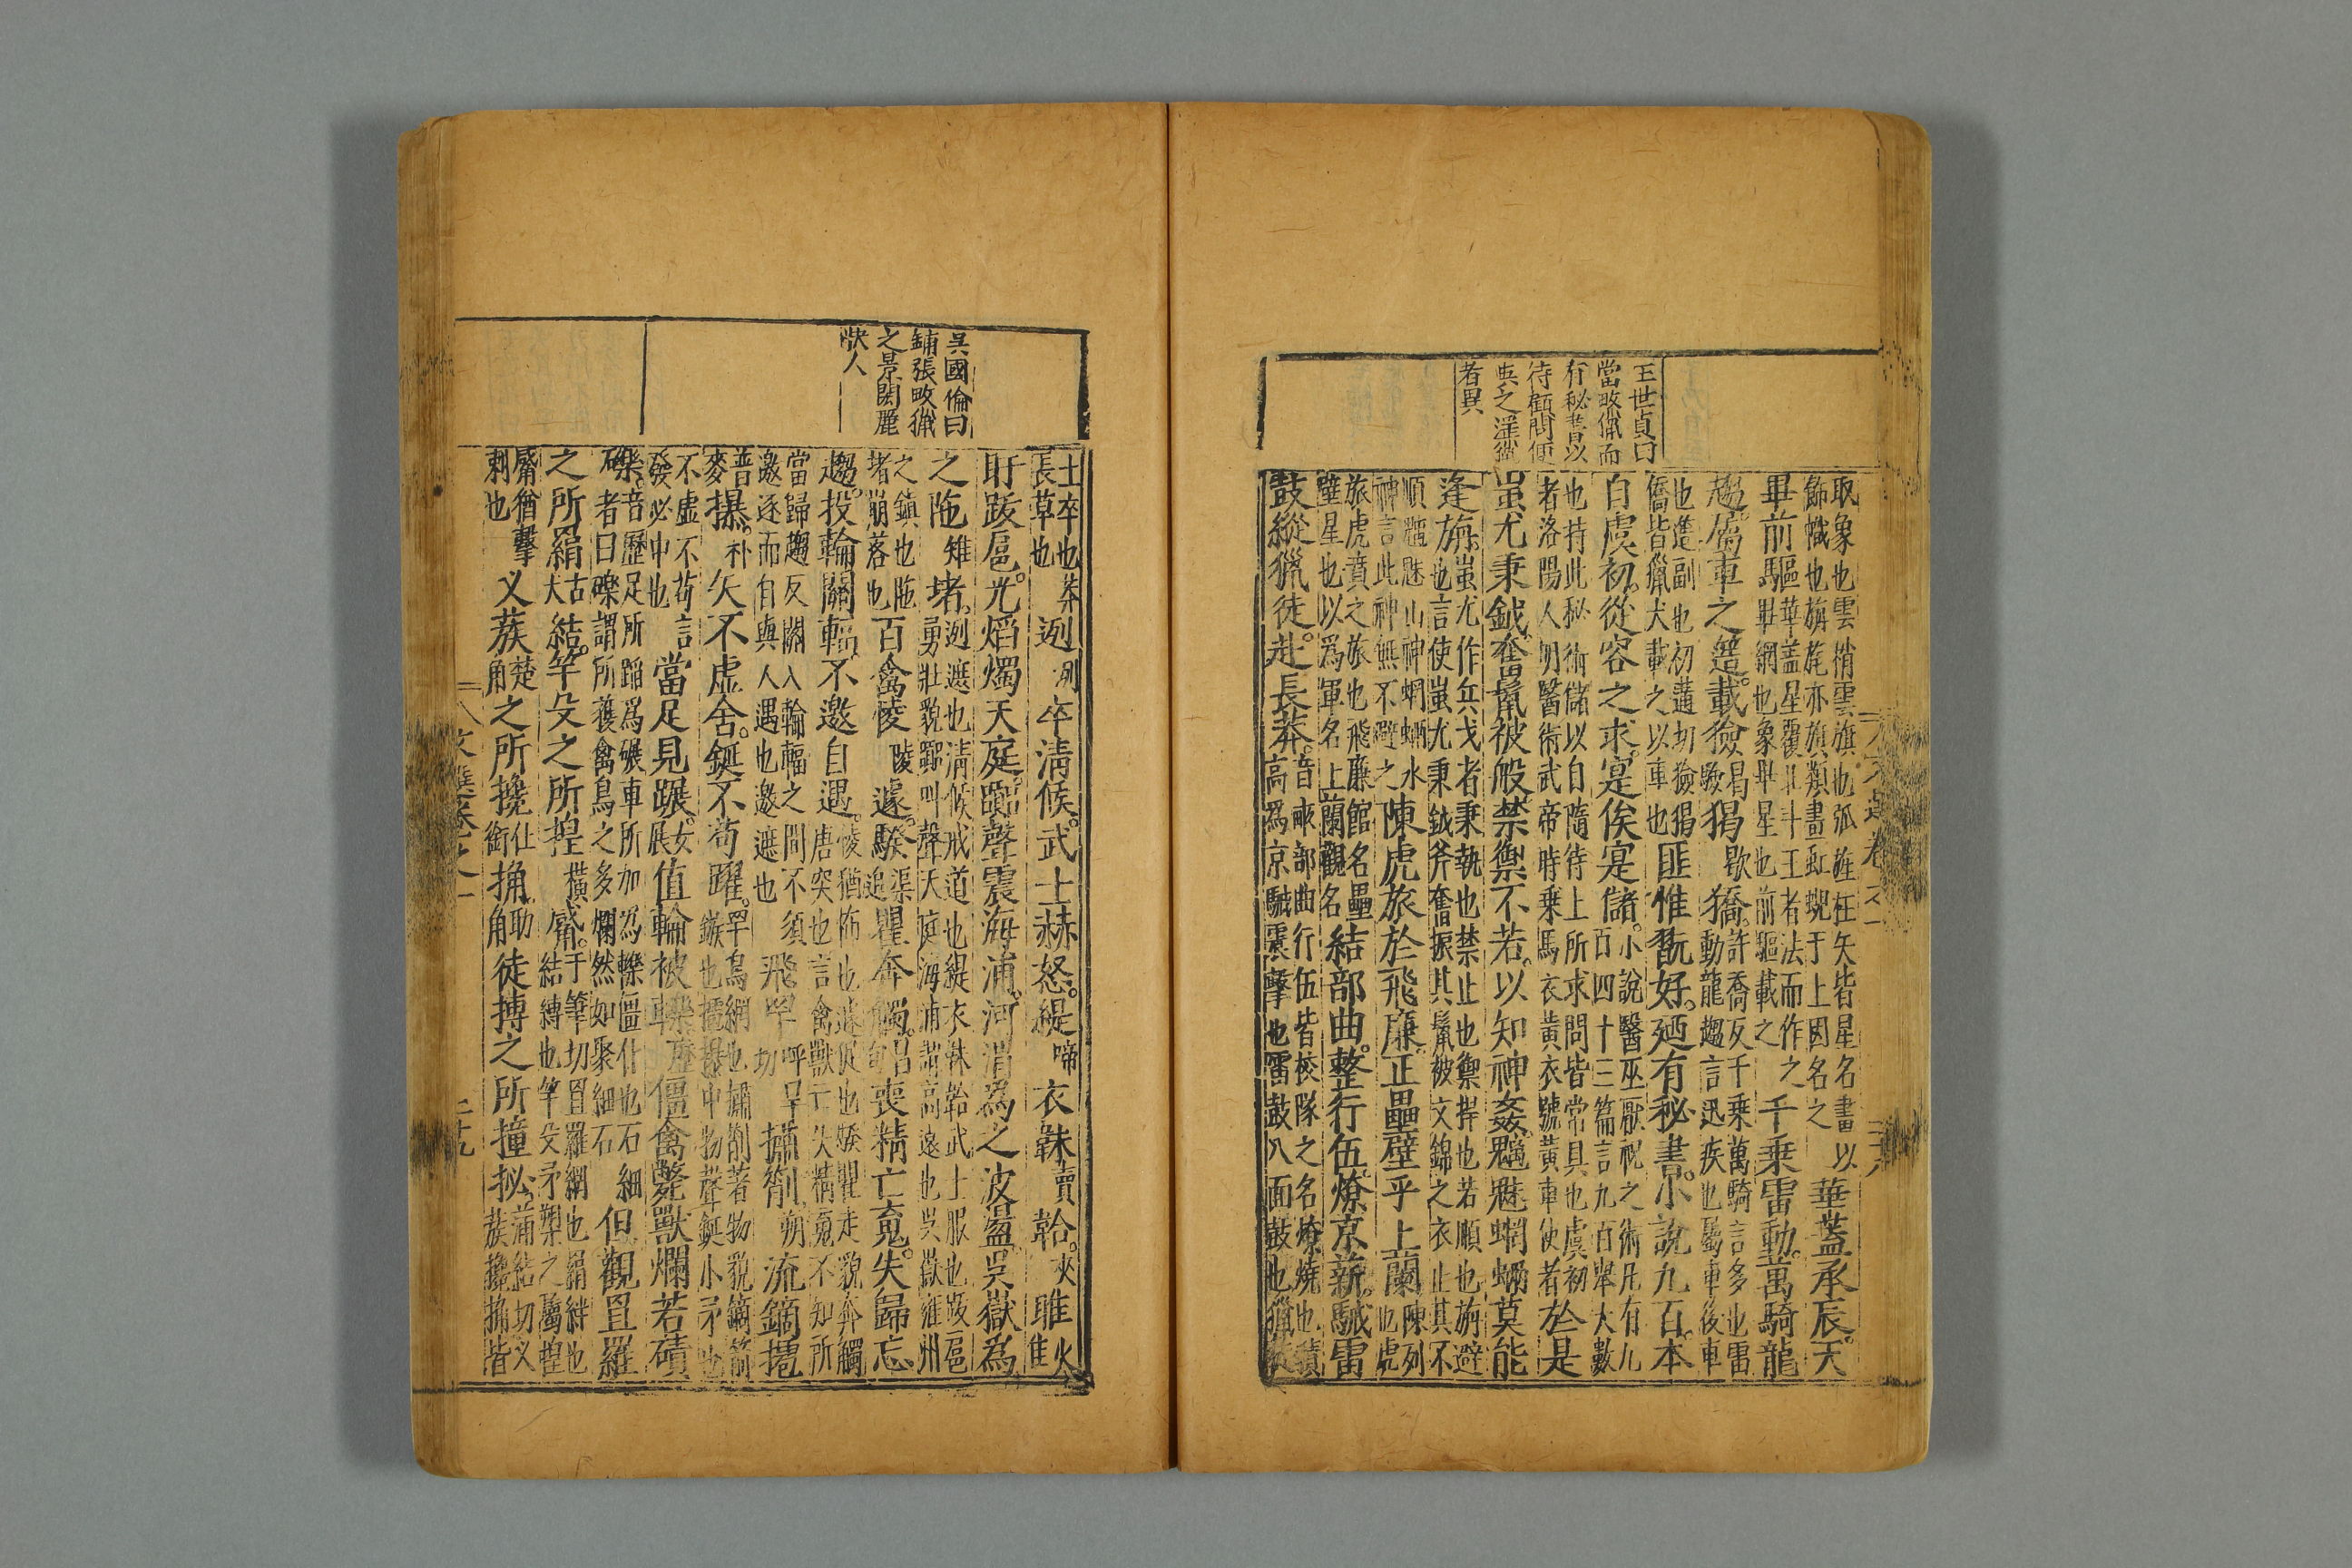 王世貞曰
當畋獵而
有秘書以
待顧問便
與乏淫獵
者異
取象也雲梢雲旗也弧旌枉矢皆星名畫以
飾幟也旃旄亦旗類畫虹蜺于上因名之
華蓋承辰。天
畢前驅
華蓋星覆北斗王者法而作之
畢網也象畢星也前驅載之
千乘雷動。萬騎龍
趨。屬車之簉。載獫曷驗猲歇獢。
許喬反千乘萬騎言多也雷
動龍趨言迅疾也屬車後車
也簉副也初蓮切獫猲
僑皆獵犬載之以車也
匪惟翫好。廼有秘書。小說九百。本
自虞初。從容之求。寔俟寔儲。
小說醫巫厭祝之術凡有九
百四十三篇言九百舉大數
也持此秘術儲以自隨待上所求問皆常具也虞初
者洛陽人明醫術武帝時乗馬衣黃衣號黃車使者
於是
蚩尤秉鉞。奮鬣被般。禁禦不若。以知神姦。魑魅蝄蜽。莫能
逢旃。
蚩尤作兵戈者秉執也禁止也禦捍也若順也旃避
也言使蚩尤秉鉞斧奮振其鬣被文錦之衣止其不
順魑魅山神蝄蜽水
神言此神無不避之
陳虎旅於飛廉。正壘壁乎上蘭。
陳列
也虎
旅虎賁之旅也飛廉館名壘
壁星也以爲軍名上蘭觀名
結部曲。整行伍。燎京薪。駴雷
鼓。縱獵徒。赴長莽。
音駴部曲行伍皆校隊之名燎燒也積
高爲京駴震擊也雷鼓八面鼓也獵徒
文選卷之一
二十八
吳國倫曰
鋪張畋獵
之景閎麗
快人
士卒也莽
長草也
迾洌卒清候。武士赫怒。緹啼衣韎賣韐。夾睢火隹
盱跋扈。光焰燭天庭。囂聲震海浦。河渭爲之波盪。吳嶽爲
之陁雉堵。
迾遮也清候戒道也緹衣韎韐武士服也跋扈
勇壯貌囂叫聲天庭海浦謂高遠也吳嶽雍州
之鎮也陁
堵崩落也
百禽㥄陵遽。騤渠追瞿奔觸。呂句喪精亡魂。失歸忘
趨。投輪關輻。不邀自遇。
㥄猶怖也遽促也騤瞿走貌奔觸
唐突也言禽獸亡失精魂不知所
當歸趨反關入輪輻之間不須
邀逐而自與人遇也邀遮也
飛罕呼旱切㨹箾朔流鏑㩧
普麥㩧。朴矢不虛舍。鋋不苟躍。
罕鳥網也㨹箾著物貌鏑箭
鏃也㩧㩧中物聲鋋小矛也
不虛不苟言
發必中也
當足見蹍。女展值輪被轢。歷僵禽斃獸爛若磧
礫。
音歷足所蹈爲蹍車所加爲轢僵仆也石細
者曰礫謂所獲禽鳥之多爛然如聚細石
但觀罝羅
之所羂古犬結。竿殳之所揘橫觱。
于筆切罝羅網也羂絆也
結縛也竿殳矛槊之屬揘
觱猶擊
刺也
叉蔟楚角之所攙仕銜捔。助角徒搏之所撞㧙。
蒲結切叉
蔟攙捔皆
文選卷之一
二十九